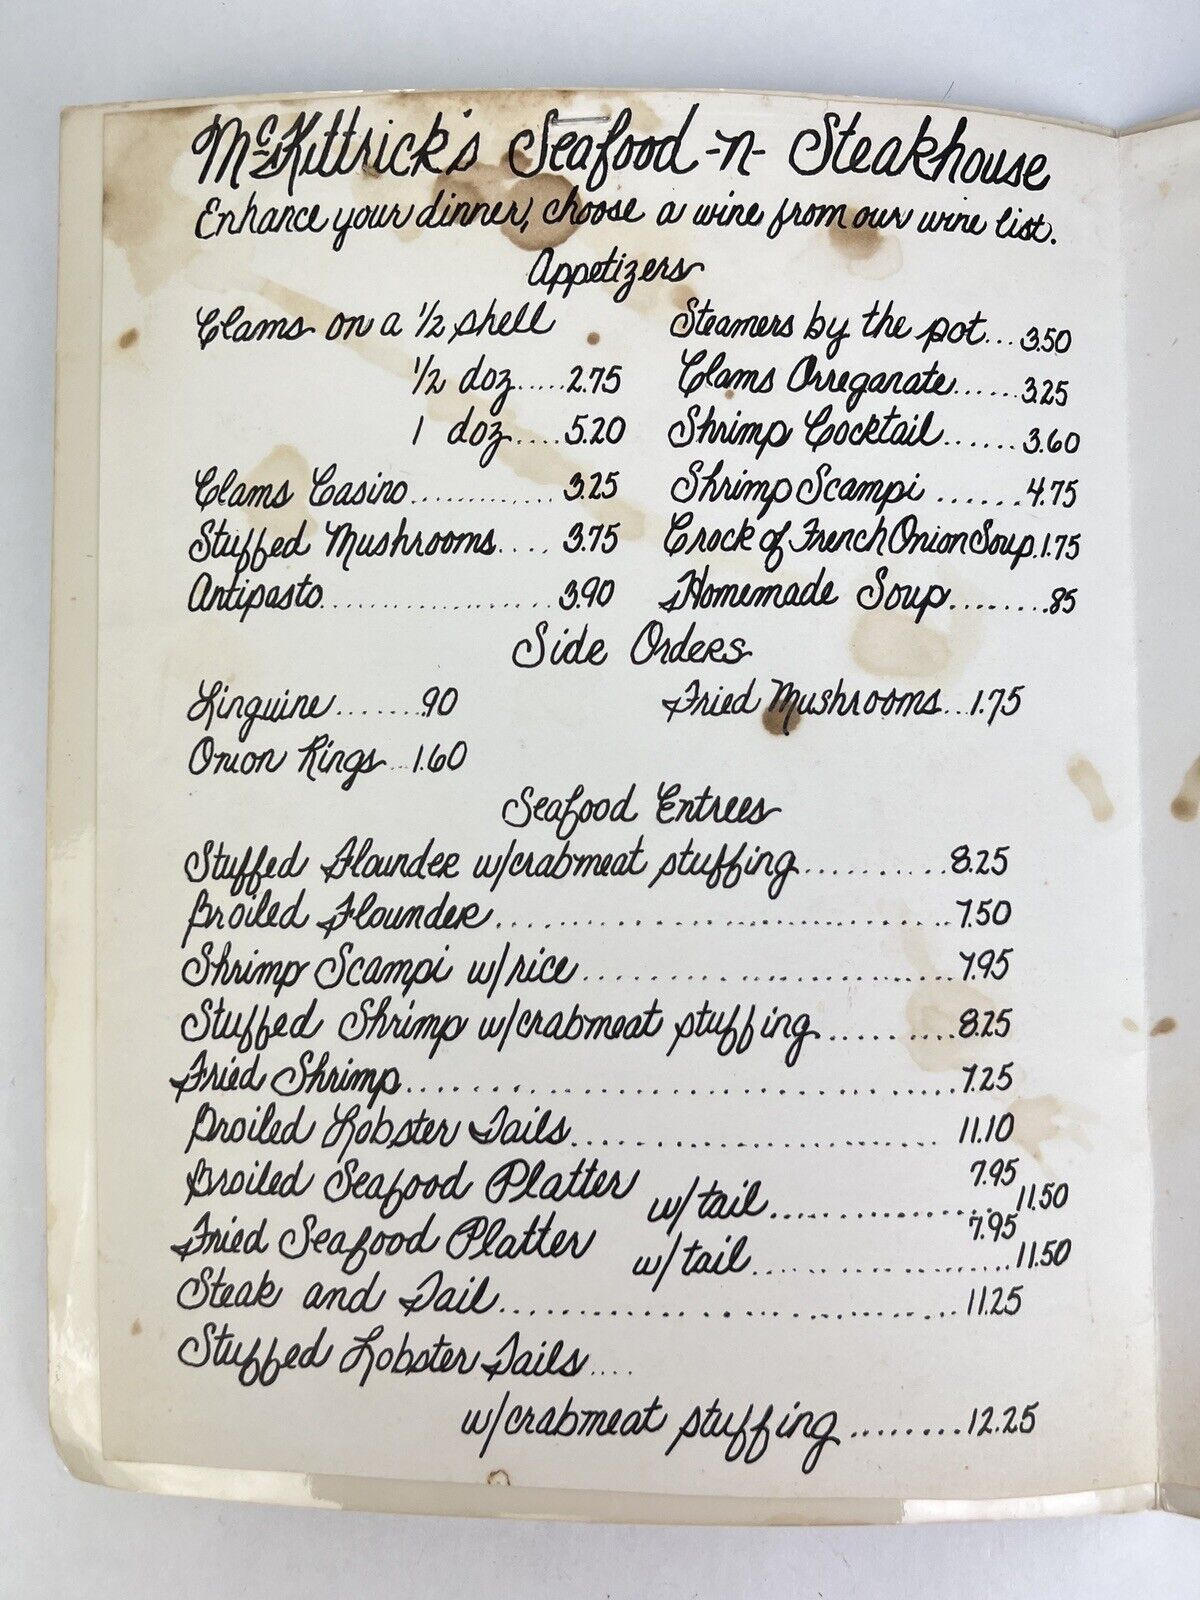 McKittrick's Seafood -n- Steakhouse
Enhance your dinner, choose a wine from our wine list.
Appetizers
Clams on a 1/2 shell
1/2 doz.....2.75
1 doz....5.20
Clams Casino.............3.25
Stuffed Mushrooms....3.75
Antipasto...................3.90
Steamers by the pot...3.50
Clams Orreganate......3.25
Shrimp Cocktail......3.60
Shrimp Scampi ......4.75
Crock of French Onion Soup.1.75
Homemade Soup........85
Side Orders
Linguine........90
Onion Rings...1.60
Fried Mushrooms...1.75
Seafood Entrees
Stuffed Flounder w/crabmeat stuffing..........8.25
Broiled Flounder..............................7.50
Shrimp Scampi w/rice.........................7.95
Stuffed Shrimp w/crabmeat stuffing.........8.25
Fried Shrimp..................................7.25
Broiled Lobster Tails........................11.10
Broiled Seafood Platter 7.95
w/tail................11.50
Fried Seafood Platter 7.95
w/tail..................11.50
Steak and Tail..............................11.25
Stuffed Lobster Tails....
w/crabmeat stuffing........12.25